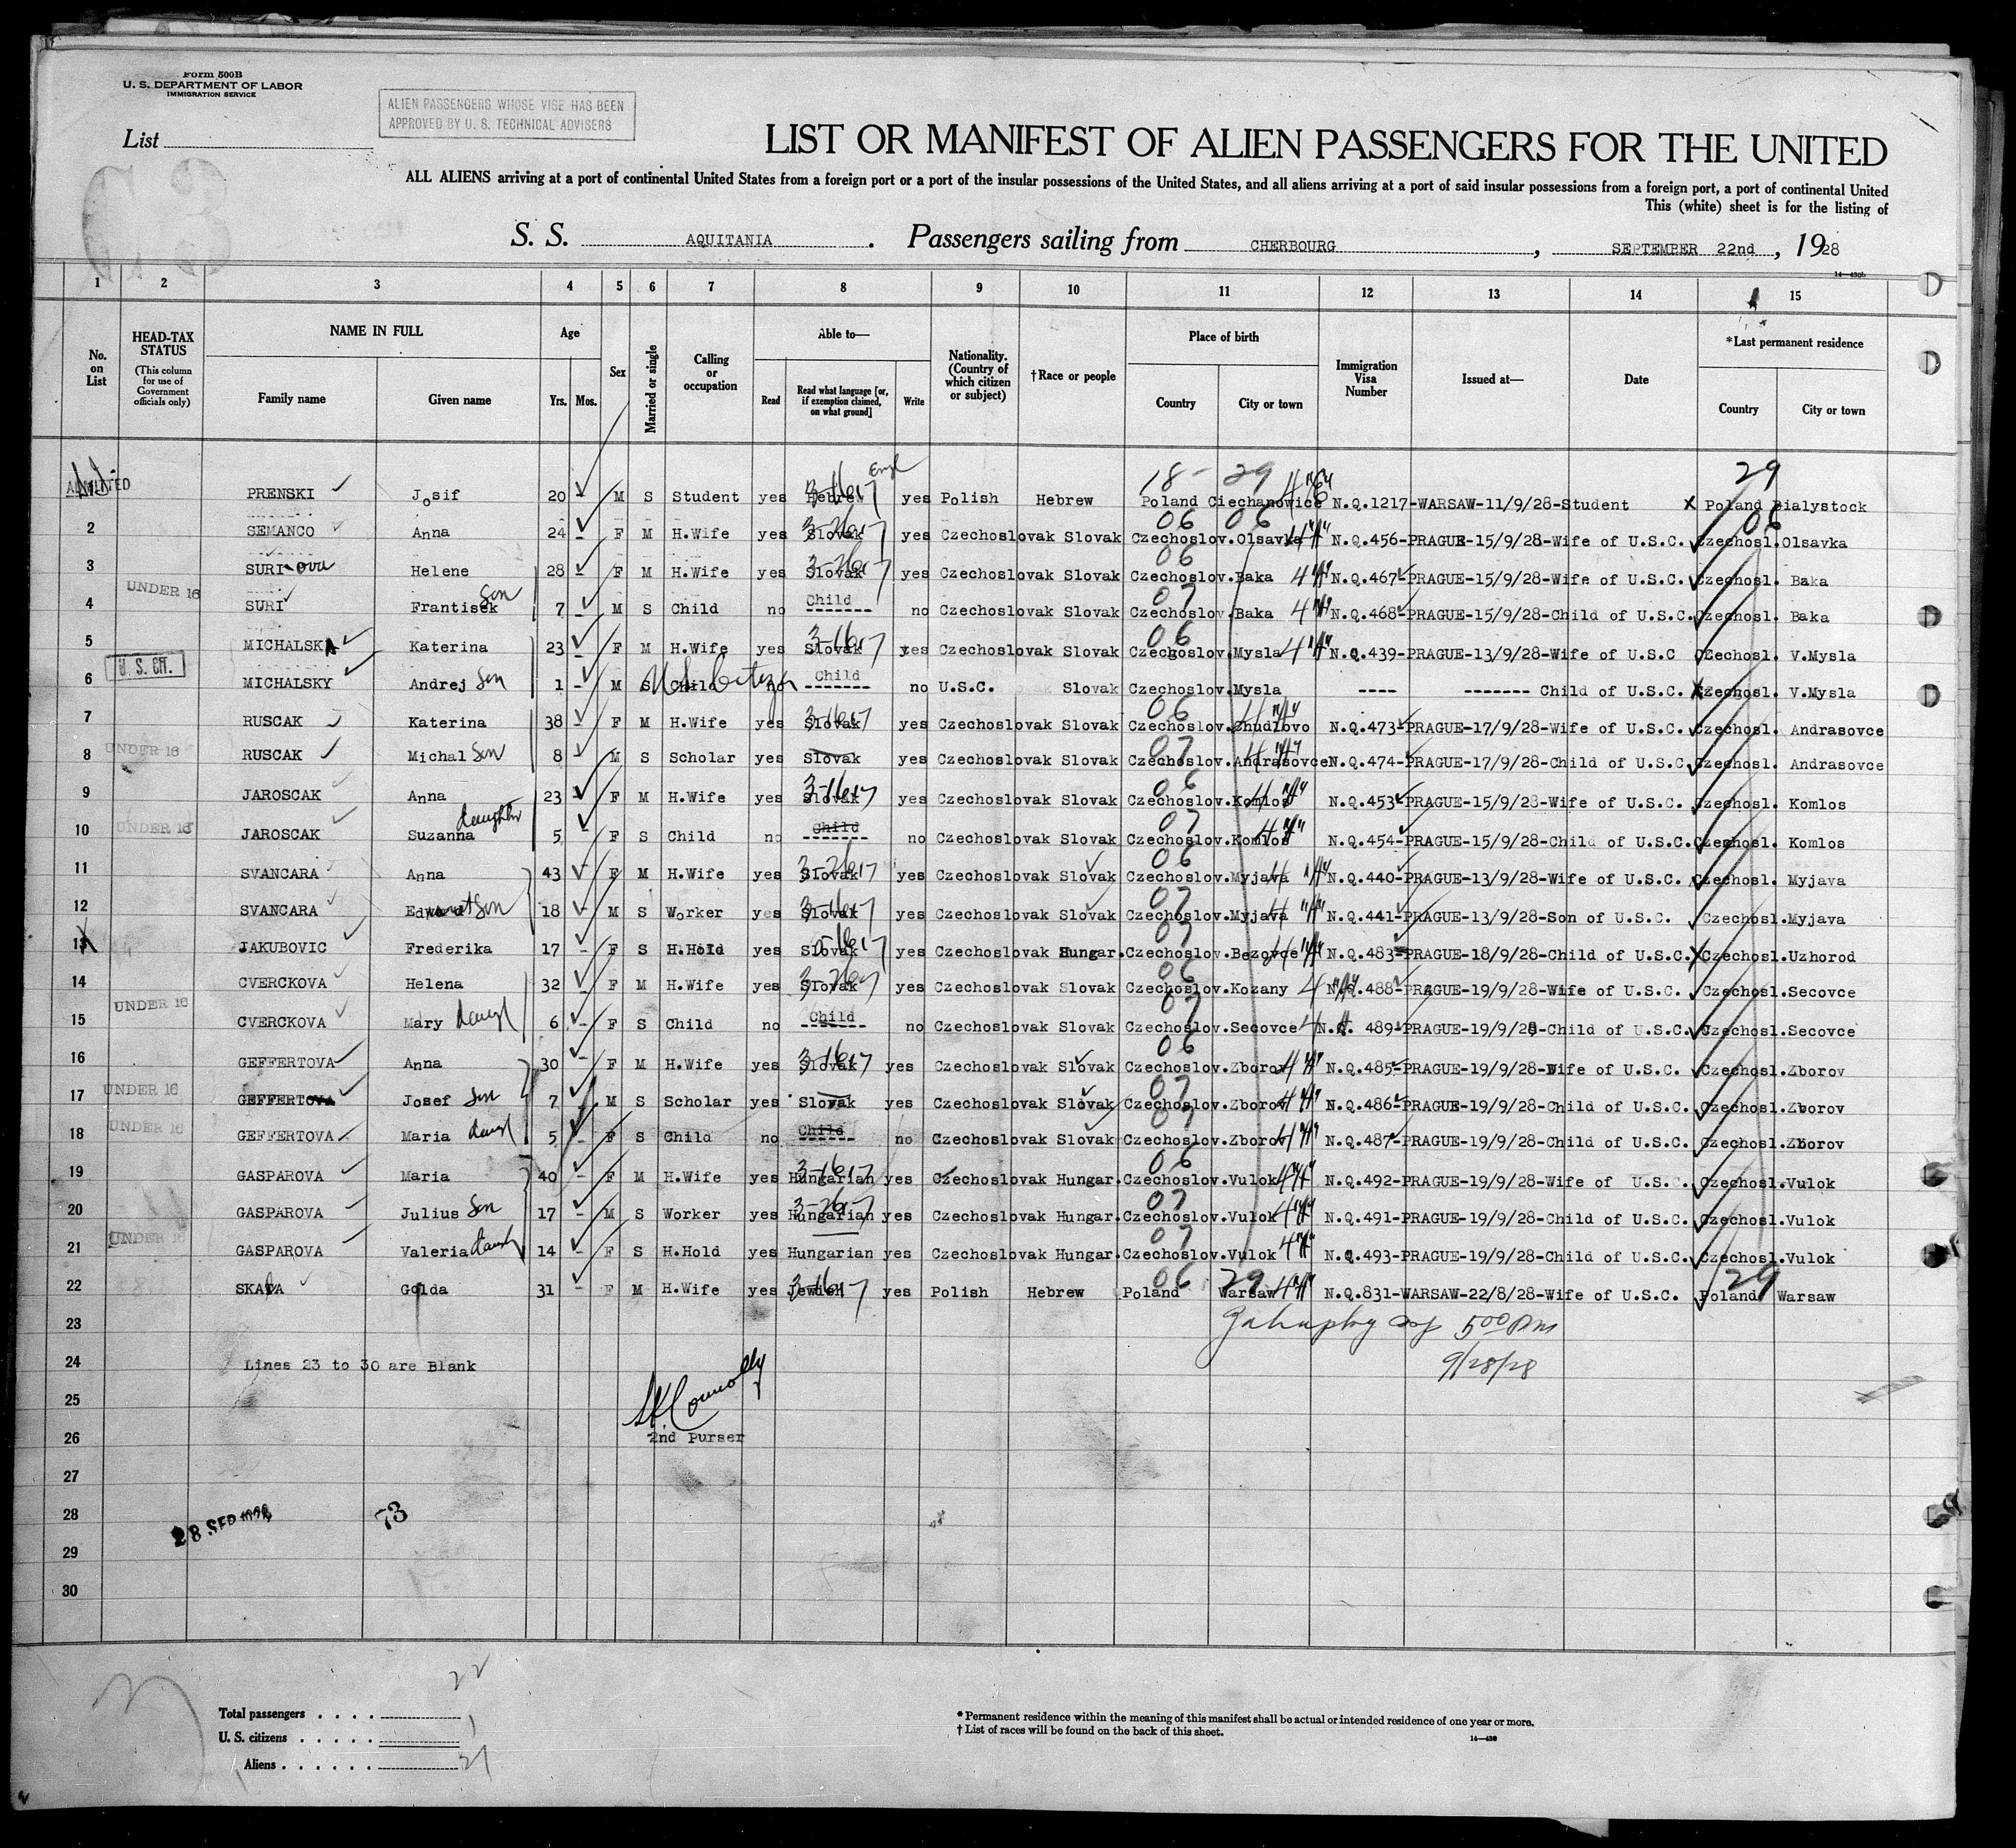 Form 500B
U. S. DEPARTMENT OF LABOR
IMMIGRATION SERVICE
ALIEN PASSENGERS WHOSE VISE HAS BEEN
APPROVED BY U. S. TECHNICAL ADVISERS
List
LIST OR MANIFEST OF ALIEN PASSENGERS FOR THE UNITED
ALL ALIENS arriving at a port of continental United States from a foreign port or a port of the insular possessions of the United States, and all aliens arriving at a port of said insular possessions from a foreign port, a port of continental United
This (white) sheet is for the listing of
S. S. AQUITANIA . Passengers sailing from CHERBOURG , SEPTEMBER 22nd , 1928
14—430b
1 2 3 4 5 6 7 8 9 10 11 12 13 14 15
No. on List
HEAD-TAX STATUS
(This column for use of Government officials only)
NAME IN FULL
Family name Given name
Age
Yrs. Mos.
Sex
Married or single
Calling or occupation
Able to—
Read
Read what language [or, if exemption claimed, on what ground]
Write
Nationality. (Country of which citizen or subject)
†Race or people
Place of birth
Country City or town
Immigration Visa Number
Issued at—
Date
*Last permanent residence
Country City or town
18 - 29 29
ADMITTED PRENSKI Josif 20 - M S Student yes Hebrew Engl yes Polish Hebrew Poland Ciechanowice N.Q.1217-WARSAW-11/9/28-Student X Poland Bialystock
06 06 06
2 SEMANCO Anna 24 - F M H.Wife yes Slovak yes Czechoslovak Slovak Czechoslov.Olsavka N.Q.456-PRAGUE-15/9/28-Wife of U.S.C. Czechosl.Olsavka
06
3 SURI-ova Helene 28 - F M H.Wife yes Slovak yes Czechoslovak Slovak Czechoslov.Baka N.Q.467-PRAGUE-15/9/28-Wife of U.S.C. Czechosl. Baka
07
4 UNDER 16 SURI Frantisek Son 7 - M S Child no Child ------- no Czechoslovak Slovak Czechoslov.Baka N.Q.468-PRAGUE-15/9/28-Child of U.S.C. Czechosl. Baka
06
5 MICHALSKA Katerina 23 - F M H.Wife yes Slovak yes Czechoslovak Slovak Czechoslov.Mysla N.Q.439-PRAGUE-13/9/28-Wife of U.S.C Czechosl. V.Mysla
6 U.S. CIT. MICHALSKY Andrej Son 1 - M S Child US Citizen no Child ------- no U.S.C. Slovak Czechoslov.Mysla ---- ------- Child of U.S.C. X Czechosl. V.Mysla
06
7 RUSCAK Katerina 38 - F M H.Wife yes Slovak yes Czechoslovak Slovak Czechoslov.Zhudlovo N.Q.473-PRAGUE-17/9/28-Wife of U.S.C. Czechosl. Andrasovce
07
8 UNDER 16 RUSCAK Michal Son 8 - M S Scholar yes Slovak yes Czechoslovak Slovak Czechoslov.Andrasovce N.Q.474-PRAGUE-17/9/28-Child of U.S.C Czechosl. Andrasovce
06
9 JAROSCAK Anna 23 F M H.Wife yes Slovak yes Czechoslovak Slovak Czechoslov.Komlos N.Q.453-PRAGUE-15/9/28-Wife of U.S.C. Czechosl. Komlos
07
10 UNDER 16 JAROSCAK Suzanna daughter 5 - F S Child no Child ------- no Czechoslovak Slovak Czechoslov.Komlos N.Q.454-PRAGUE-15/9/28-Child of U.S.C. Czechosl. Komlos
06
11 SVANCARA Anna 43 - F M H.Wife yes Slovak yes Czechoslovak Slovak Czechoslov.Myjava N.Q.440-PRAGUE-13/9/28-Wife of U.S.C. Czechosl. Myjava
07
12 SVANCARA Son 18 - M S Worker yes Slovak yes Czechoslovak Slovak Czechoslov.Myjava N.Q.441-PRAGUE-13/9/28-Son of U.S.C. Czechosl.Myjava
07
13 JAKUBOVIC Frederika 17 - F S H.Hold yes Slovak yes Czechoslovak Hungar.Czechoslov.Bezovce N.Q.483-PRAGUE-18/9/28-Child of U.S.C. X Czechosl.Uzhorod
06
14 CVERCKOVA Helena 32 F M H.Wife yes Slovak yes Czechoslovak Slovak Czechoslov.Kozany N.Q.488-PRAGUE-19/9/28-Wife of U.S.C. Czechosl.Secovce
07
15 UNDER 16 CVERCKOVA Mary daugt 6 - F S Child no Child ------- no Czechoslovak Slovak Czechoslov.Secovce N.Q. 489-PRAGUE-19/9/28-Child of U.S.C. Czechosl.Secovce
06
16 GEFFERTOVA Anna 30 - F M H.Wife yes Slovak yes Czechoslovak Slovak Czechoslov.Zborov N.Q.485-PRAGUE-19/9/28-Wife of U.S.C. Czechosl.Zborov
07
17 UNDER 16 GEFFERTOVA Josef Son 7 - M S Scholar yes Slovak yes Czechoslovak Slovak Czechoslov.Zborov N.Q.486-PRAGUE-19/9/28-Child of U.S.C. Czechosl.Zborov
07
18 UNDER 16 GEFFERTOVA Maria daugt 5 - F S Child no Child ------ no Czechoslovak Slovak Czechoslov.Zborov N.Q.487-PRAGUE-19/9/28-Child of U.S.C. Czechosl.Zborov
06
19 GASPAROVA Maria 40 - F M H.Wife yes Hungarian yes Czechoslovak Hungar.Czechoslov.Vulok N.Q.492-PRAGUE-19/9/28-Wife of U.S.C. Czechosl.Vulok
07
20 GASPAROVA Julius Son 17 - M S Worker yes Hungarian yes Czechoslovak Hungar.Czechoslov.Vulok N.Q.491-PRAGUE-19/9/28-Child of U.S.C. Czechosl.Vulok
07
21 UNDER 16 GASPAROVA Valeria daugt 14 - F S H.Hold yes Hungarian yes Czechoslovak Hungar.Czechoslov.Vulok N.Q.493-PRAGUE-19/9/28-Child of U.S.C. Czechosl.Vulok
06 29 29
22 Golda 31 - F M H.Wife yes Jewish yes Polish Hebrew Poland Warsaw N.Q.831-WARSAW-22/8/28-Wife of U.S.C. Poland Warsaw
23 5 00 Pm
24 Lines 23 to 30 are Blank 9/28/28
25 Connolly
26 2nd Purser
27
28 28 SEP 1928 73
29
30
22
Total passengers . . . .
U. S. citizens . . . . . 1
Aliens . . . . . . 21
* Permanent residence within the meaning of this manifest shall be actual or intended residence of one year or more.
† List of races will be found on the back of this sheet.
14—430